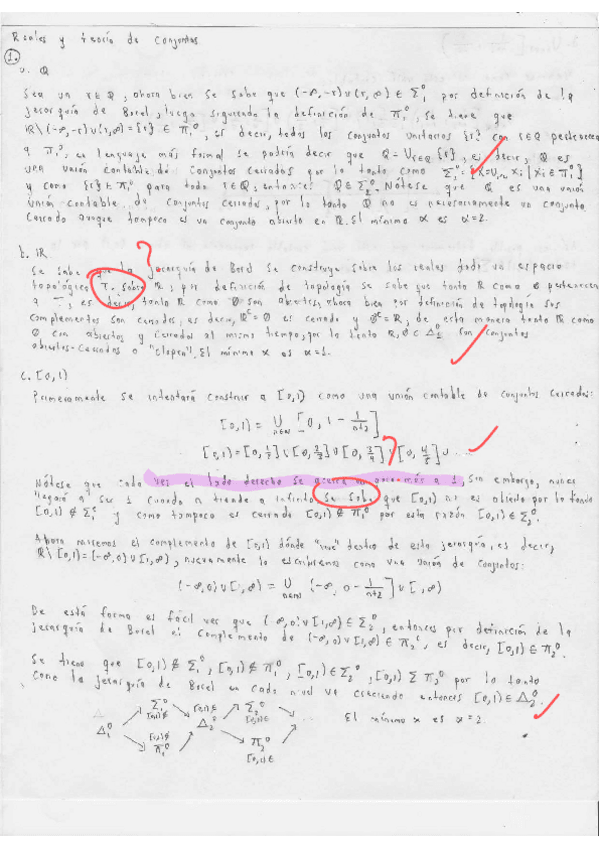 Reales y teoría de Conjuntos.
1.
a. Q
Sea un r∈Q, ahora bien se sabe que (-∞,-r)∪(r,∞) ∈ Σ₁⁰ por definición de la
jerarquía de Borel, luego siguiendo la definición de Π₁⁰, se tiene que
R\(-∞,-r)∪(r,∞) = {r} ∈ Π₁⁰, es decir, todos los conjuntos unitarios {r} con r∈Q pertenecen
a Π₁⁰, en lenguaje más formal se podría decir que Q = ∪r∈Q {r}, es decir, Q es
una unión contable de conjuntos cerrados por lo tanto como
y como {r} ∈ Π₁⁰ para todo r∈Q; entonces Q∈Σ₂⁰. Nótese que Q es una unión
unión contable de conjuntos cerrados, por lo tanto Q no es necesariamente un conjunto
Cerrado aunque tampoco es un conjunto abierto en R. El mínimo α es α=2.
b. R ?
Se sabe que la jerarquía de Borel se construye sobre los reales dado un espacio
topológico T sobre R; por definición de topología se sabe que tanto R como ∅ pertenecen
a T, es decir, tanto R como ∅ son abiertos, ahora bien por definición de topología sus
complementos son cerrados, es decir, Rᶜ=∅ es cerrado y ∅ᶜ=R, de esta manera tanto R como
∅ son abiertos y cerrados al mismo tiempo, por lo tanto R,∅ ∈ Δ₁⁰ son conjuntos
abiertos-cerrados o "clopen". El mínimo α es α=1.
c. [0,1)
Primeramente se intentará construir a [0,1) como una unión contable de conjuntos cerrados:
[0,1) = ∪n∈N [0, 1 - 1/n+2]
[0,1) = [0,1/2] ∪ [0,2/3] ∪ [0,3/4] ∪ [0,4/5] ∪ ... ?
Nótese que cada vez el lado derecho se acerca un poco más a 1, sin embargo, nunca
"llegará" a ser 1 cuando n tiende a infinito. Se sabe que [0,1) no es abierto por lo tanto
[0,1) ∉ Σ₁⁰ y como tampoco es cerrado [0,1) ∉ Π₁⁰ por esta razón [0,1) ∈ Σ₂⁰.
Ahora miremos el complemento de [0,1) dónde "vive" dentro de esta jerarquía, es decir,
R\[0,1) = (-∞,0) ∪ [1,∞), nuevamente lo escribimos como una unión de conjuntos:
(-∞,0) ∪ [1,∞) = ∪n∈N (-∞, 0 - 1/n+2] ∪ [1,∞)
De está forma es fácil ver que (-∞,0) ∪ [1,∞) ∈ Σ₂⁰, entonces por definición de la
jerarquía de Borel el complemento de (-∞,0) ∪ [1,∞) ∈ Π₂⁰, es decir, [0,1) ∈ Π₂⁰.
Se tiene que [0,1) ∉ Σ₁⁰, [0,1) ∉ Π₁⁰, [0,1) ∈ Σ₂⁰, [0,1) Σ Π₂⁰ por lo tanto
Como la jerarquía de Borel en cada nivel va creciendo entonces [0,1) ∈ Δ₂⁰.
Σ₁⁰ [0,1)∉ [0,1)∈ Σ₂⁰ [0,1)∈ ... El mínimo α es α=2.
Δ₁⁰ Δ₂⁰
[0,1)∉ Π₁⁰ Π₂⁰ [0,1)∈